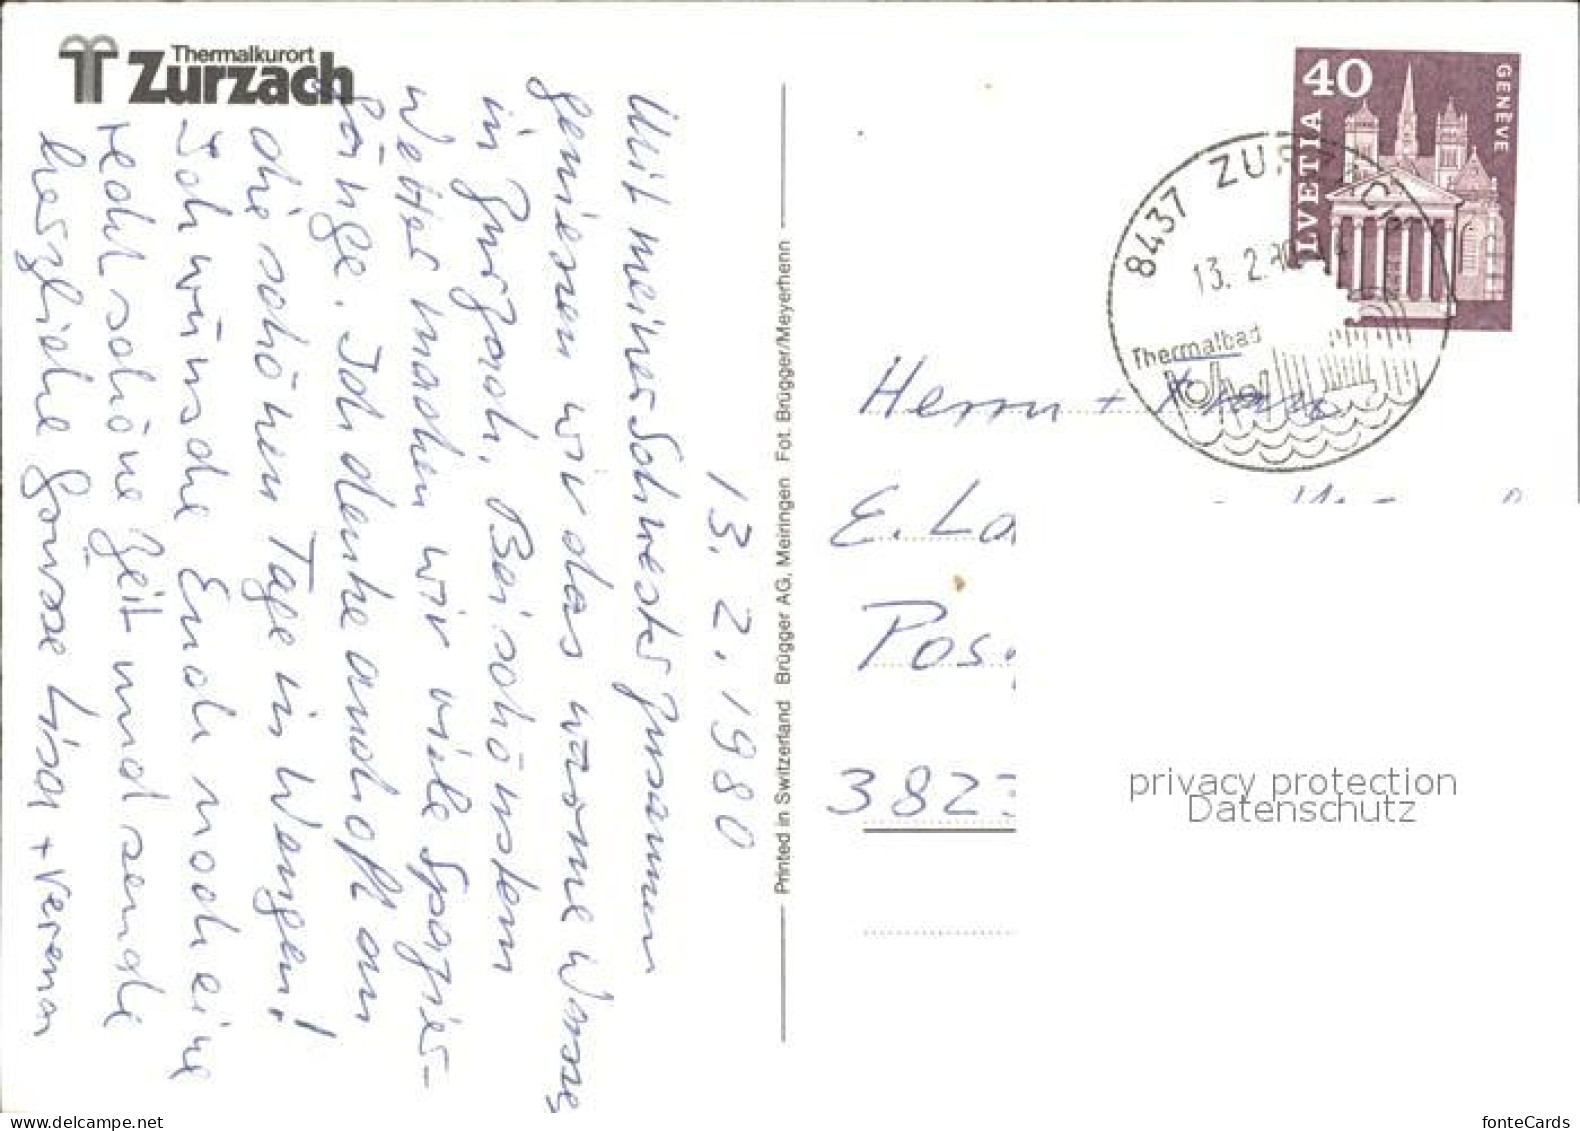 Thermalkurort
Zurzach
13. 2. 1980
Mit meiner Schwester zusammen
geniessen wir das warme Wasser
in Zurzach. Bei schönstem
Wetter machen wir viele Spazier-
gänge. Ich denke auch oft an
die schönen Tage in Wengen!
Ich wünsche Euch noch eine
recht schöne Zeit und sende
herzliche Grüsse Lisa + Verena
Printed in Switzerland Brügger AG, Meiringen Fot. Brügger/Meyerhenn
40
HELVETIA
GENÈVE
8437 ZURZACH
13. 2. 80
Thermalbad
Herrn + Frau
E. La
Pos
382
privacy protection
Datenschutz
fonteCards